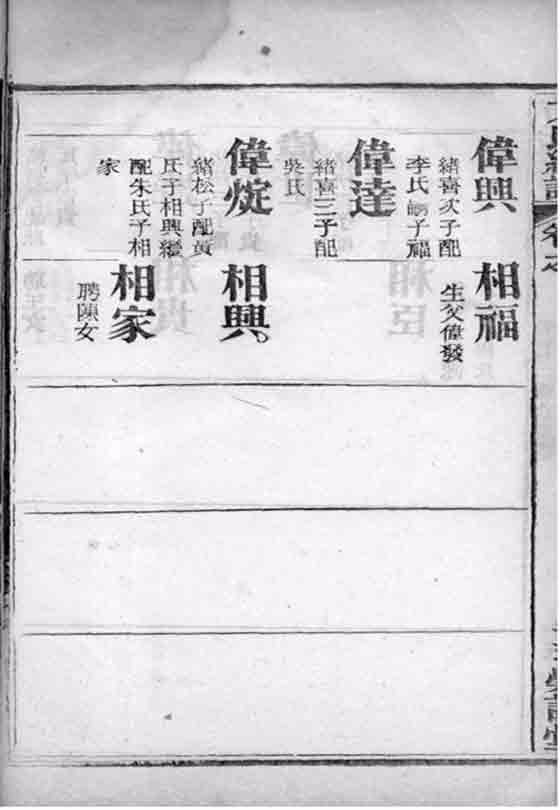 偉興
緒喜次子配
李氏嗣子福
偉達
緒喜三子配
吳氏
偉烶
緒松子配黃
氏子相興繼
配朱氏子相
家
相福
生父偉發
相興
相家
聘陳女